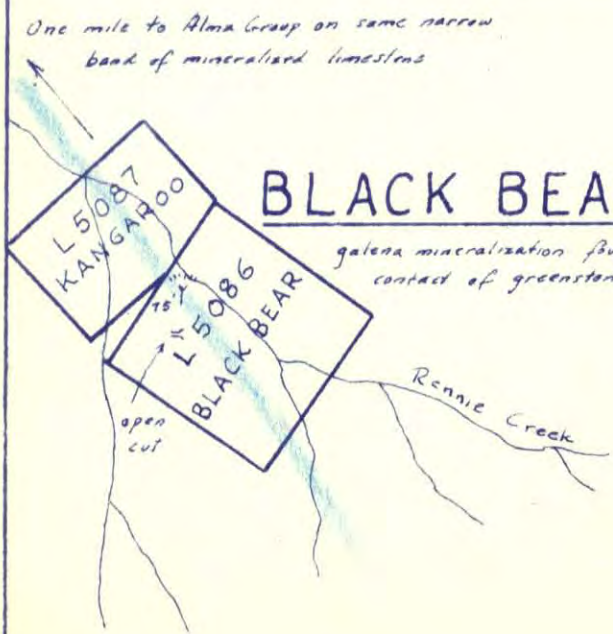 One mile to Alma Group on same narrow
band of mineralized limestone
BLACK BEA
galena mineralization fou
contact of greenston
L 5087
KANGAROO
L 5086
BLACK BEAR
75
open
cut
Rennie Creek